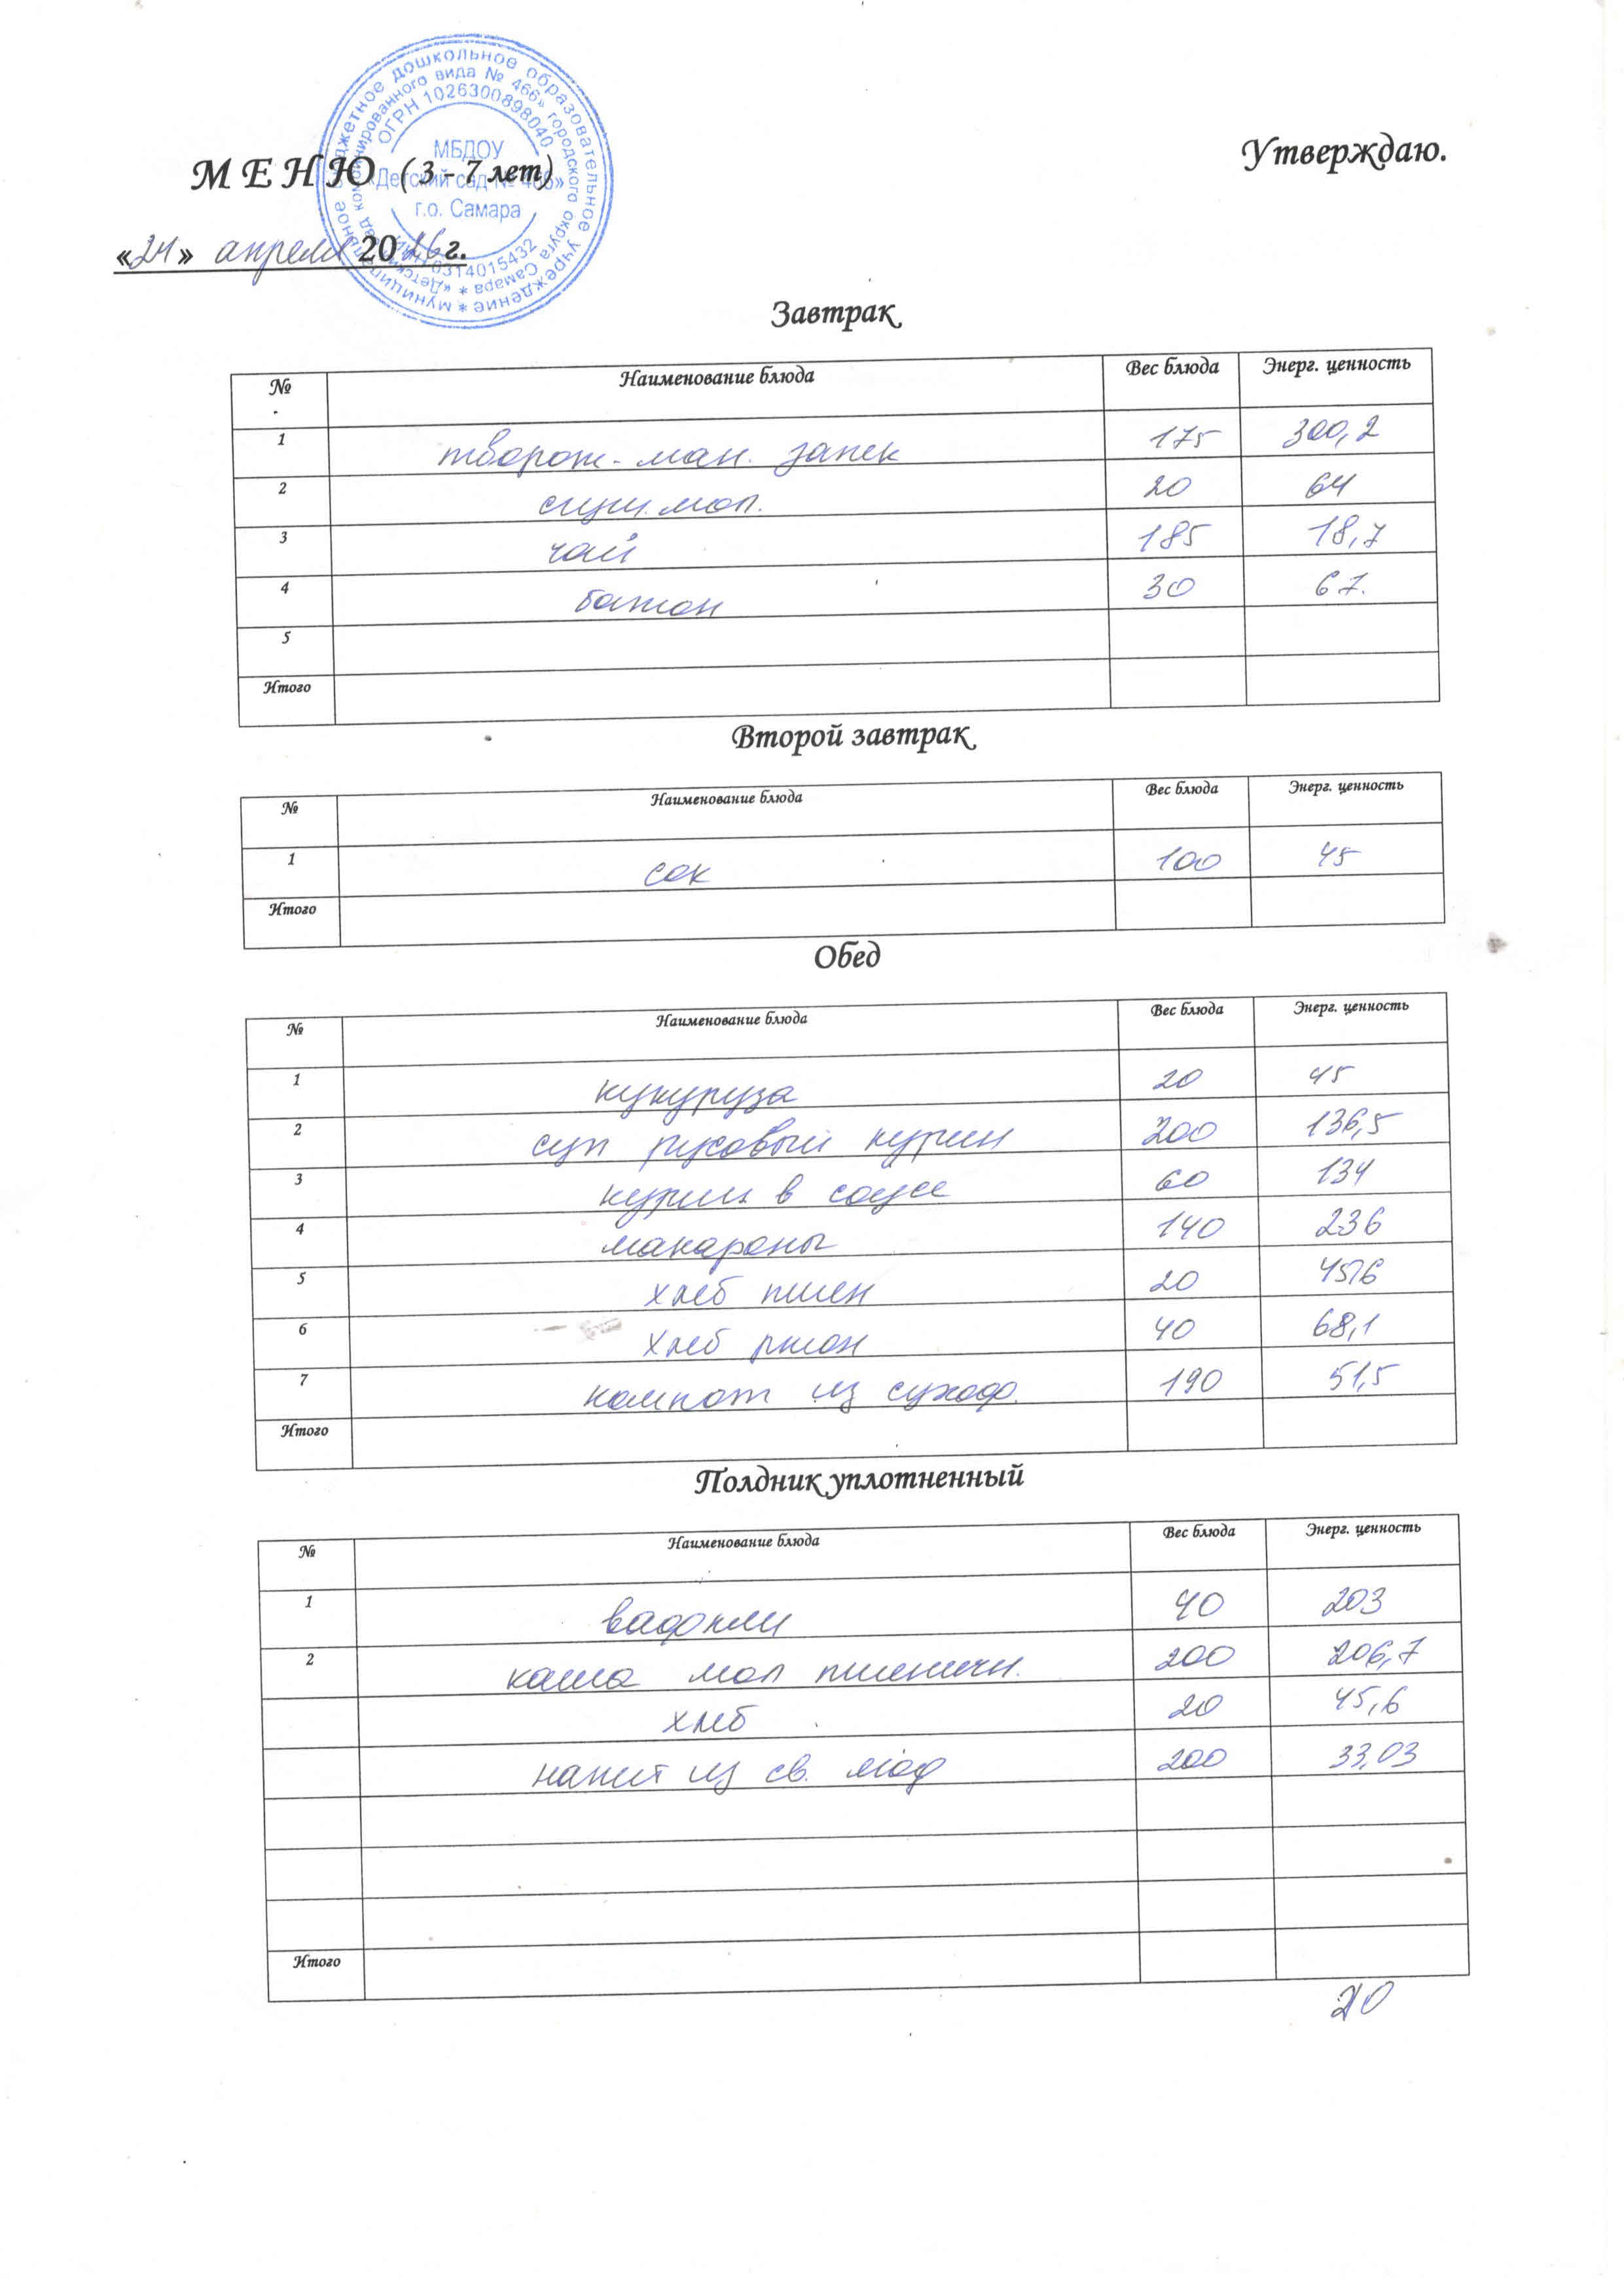 муниципальное бюджетное дошкольное образовательное учреждение *
«Детский сад комбинированного вида № 466» городского округа Самара *
ОГРН 1026300898040
6314015432
МБДОУ
«Детский сад № 466»
г.о. Самара
М Е Н Ю ( 3 - 7 лет)
Утверждаю.
«24» апреля 2026г.
Завтрак
№ Наименование блюда Вес блюда Энерг. ценность
1 творож-ман. запек 175 300,2
2 сгущ.мол. 20 64
3 чай 185 18,7
4 батон 30 67.
5
Итого
Второй завтрак
№ Наименование блюда Вес блюда Энерг. ценность
1 сок 100 45
Итого
Обед
№ Наименование блюда Вес блюда Энерг. ценность
1 кукуруза 20 45
2 суп рисовый курин 200 136,5
3 курица в соусе 60 134
4 макароны 140 236
5 хлеб пшен 20 45,6
6 хлеб ржан 40 68,1
7 компот из сухоф. 190 51,5
Итого
Полдник уплотненный
№ Наименование блюда Вес блюда Энерг. ценность
1 вафли 40 203
2 каша мол пшеничн. 200 206,7
хлеб 20 45,6
напит из св. 200 33,03
Итого
20